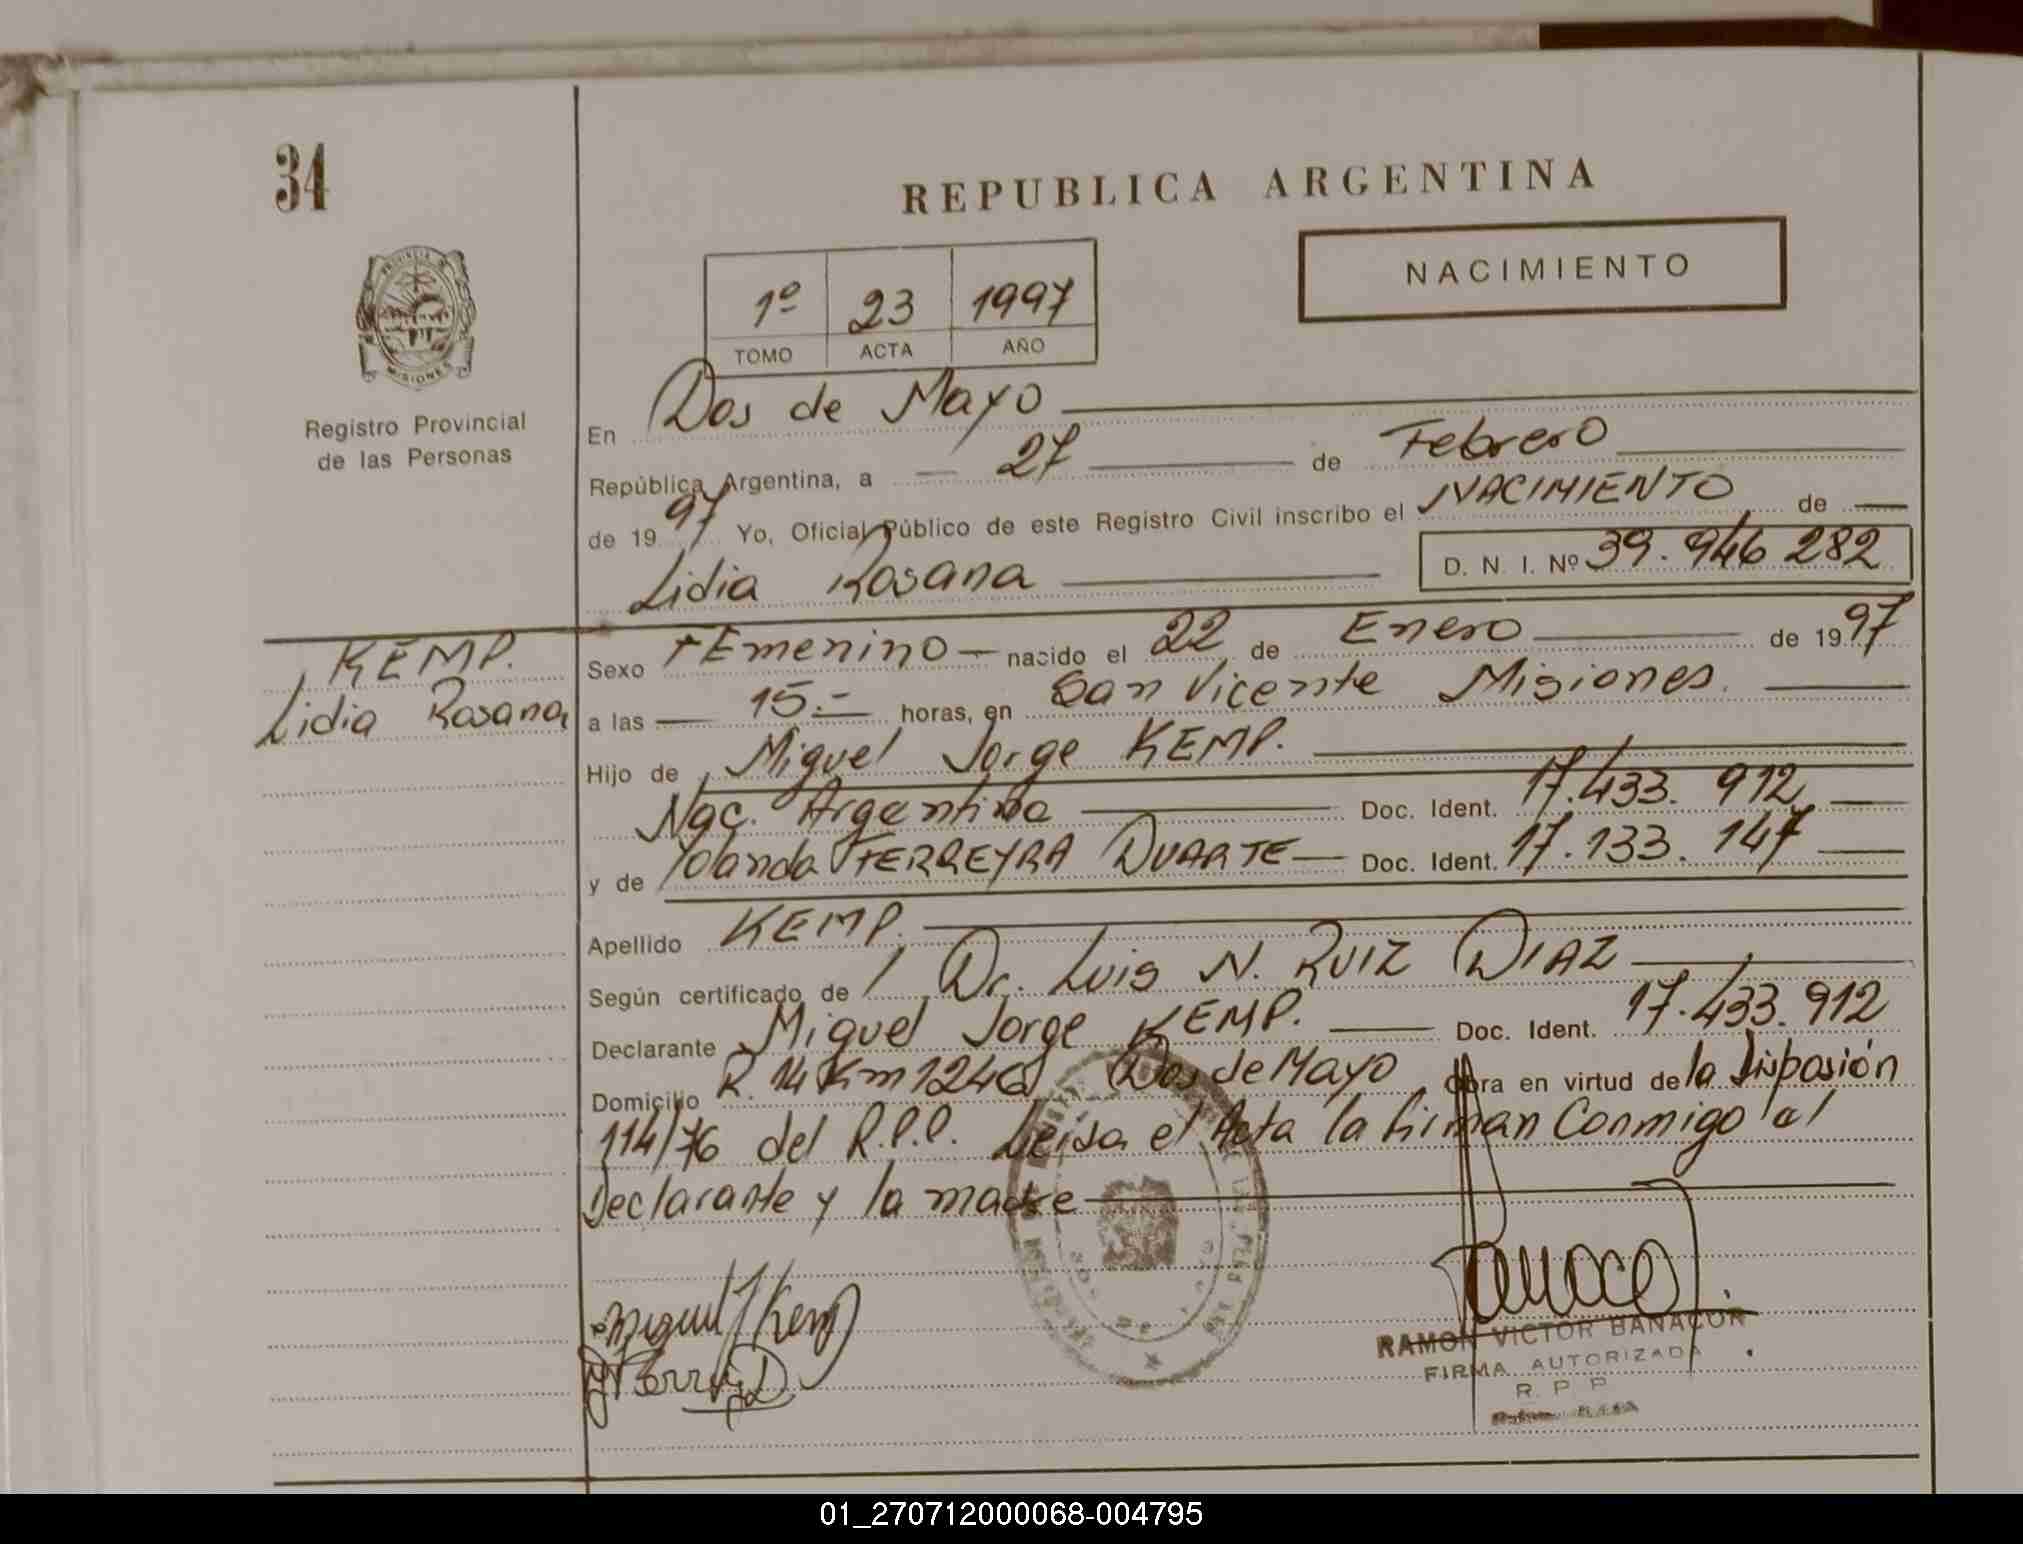 34
REPUBLICA ARGENTINA
NACIMIENTO
1º 23 1997
TOMO ACTA AÑO
PROVINCIA DE
MISIONES
Registro Provincial
de las Personas
En Dos de Mayo
República Argentina, a 27 de Febrero
de 1997 Yo, Oficial Público de este Registro Civil inscribo el NACIMIENTO de
Lidia Rosana D. N. I. Nº 39.946 282
KEMP.
Lidia Rosana
Sexo FEmenino nacido el 22 de Enero de 1997
a las 15.- horas, en San Vicente Misiones.
Hijo de Miguel Jorge KEMP.
Nac. Argentina Doc. Ident. 17.433. 912
y de Yolanda FERREYRA DUARTE Doc. Ident. 17.133. 147
Apellido KEMP.
Según certificado de Dr. Luis N. RUIZ DIAZ
Declarante Miguel Jorge KEMP. Doc. Ident. 17.433.912
Domicilio R. 14 Km 1246 Dos de Mayo Obra en virtud de la Disposión
114/76 del R.P.P. Leida el Acta la firman Conmigo el
Declarante y la madre
Miguel J Kemp
RAMON VICTOR BANACOR
FIRMA AUTORIZADA
R. P. P.
01_270712000068-004795